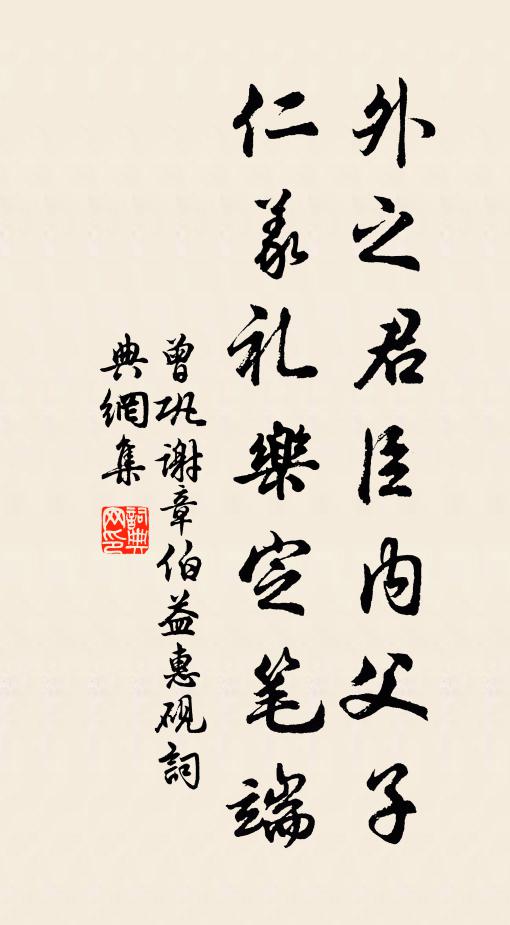 外之君臣内父子
仁義礼樂定笔端
曾巩谢章伯益惠砚詞
典網集
詞典
网印